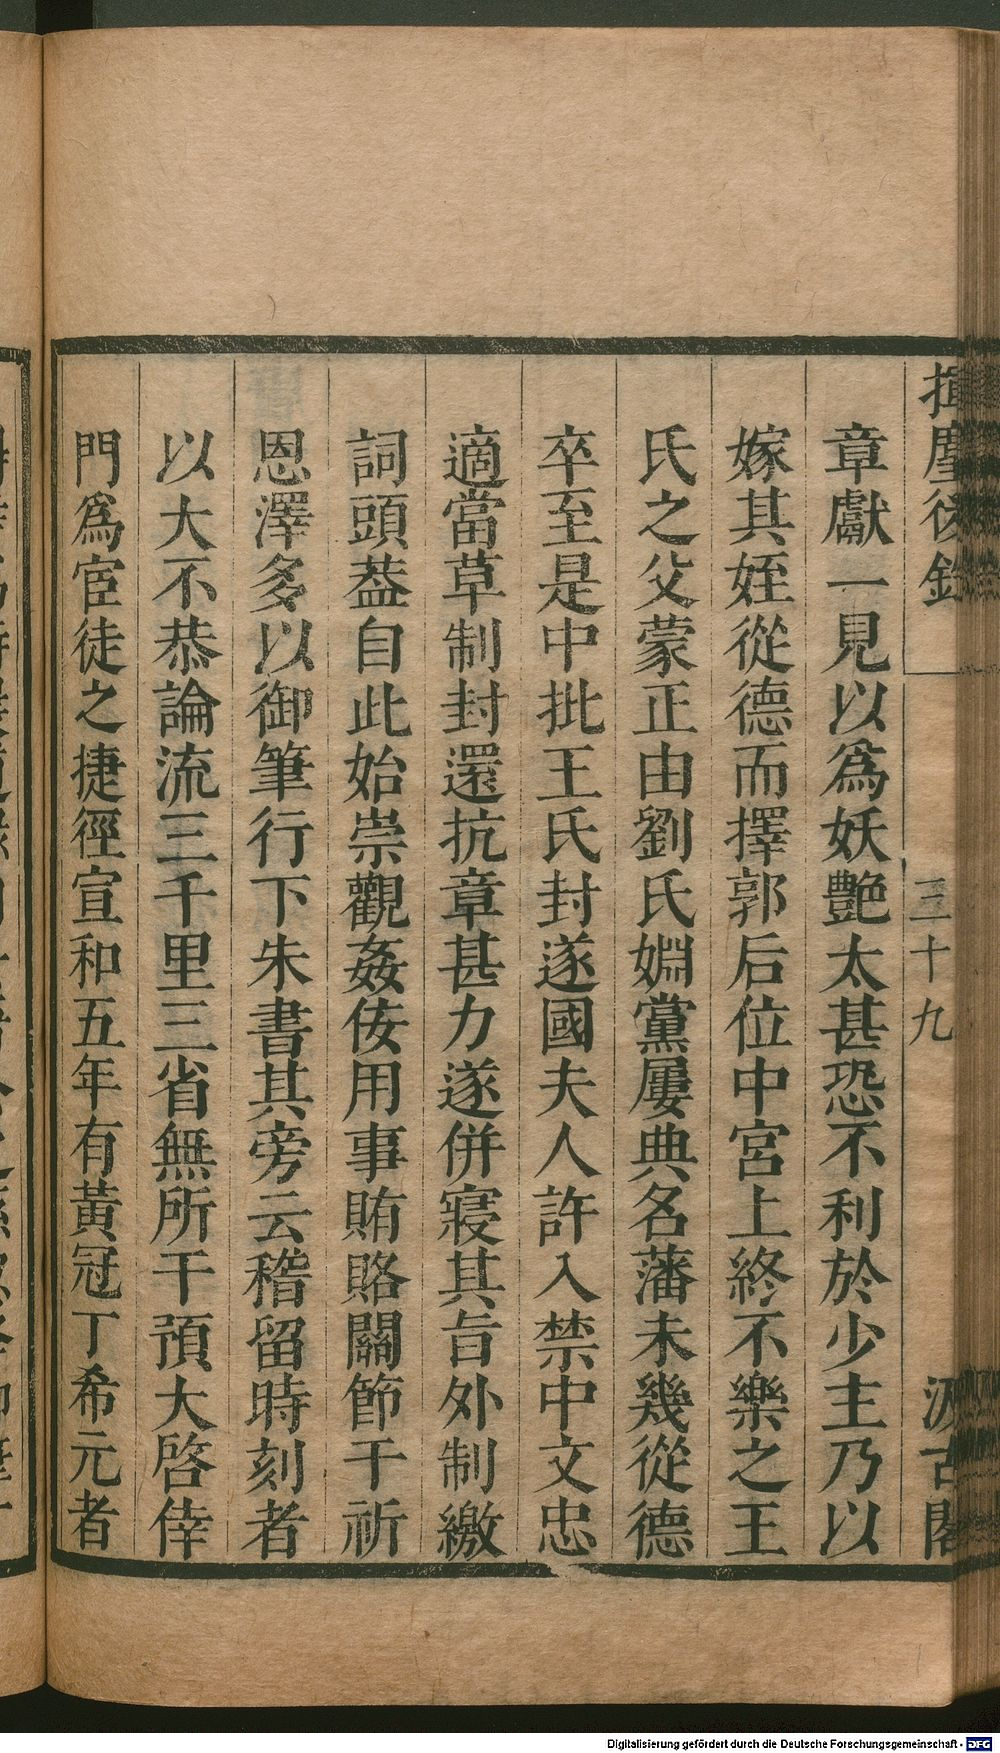 揮麈後錄
三十九
汲古閣
章獻一見以爲妖艷太甚恐不利於少主乃以
嫁其姪從德而擇郭后位中宮上終不樂之王
氏之父蒙正由劉氏婣黨屢典名藩未幾從德
卒至是中批王氏封遂國夫人許入禁中文忠
適當草制封還抗章甚力遂併寢其旨外制繳
詞頭葢自此始崇觀姦佞用事賄賂關節干祈
恩澤多以御筆行下朱書其旁云稽留時刻者
以大不恭論流三千里三省無所干預大啓倖
門爲宦徒之捷徑宣和五年有黃冠丁希元者
Digitalisierung gefördert durch die Deutsche Forschungsgemeinschaft - DFG